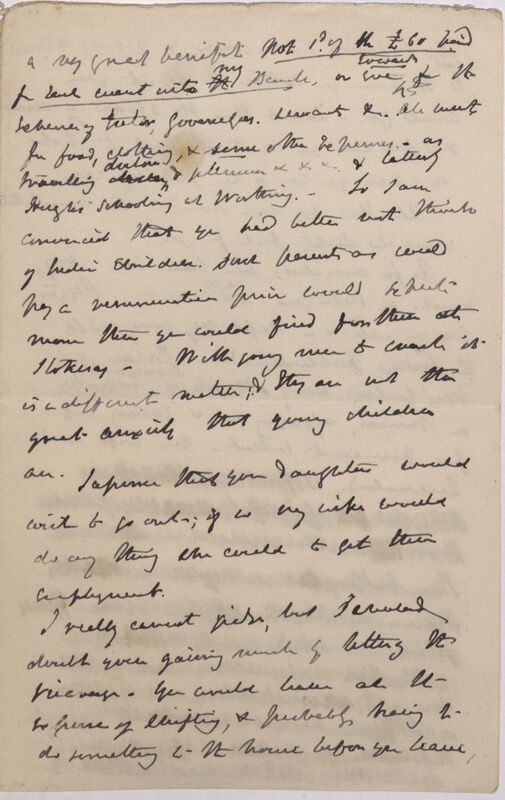 a very great benefit. Not 1d of the £60 paid
for each went into my Bank, or give towards the
expense of tutor, governess, servant &c. All went
for food, clothing, & some other expenses - as
travelling doctoring & &
Hugh's schooling at Worthing. - So I am
convinced that you had better not think
of Indian Children. Such parents as could
pay a remunerative price would expect
more than you could find for them at
- With young men to coach it
is a different matter; & they are not the
great anxiety that young children
are. I suppose that your Daughters would
wish to go out; if so my wife would
do any thing she could to get them
employment.
I really cannot judge, but I should
doubt your gaining much by letting the
Vicarage. You would have all the
expense of shifting, & probably having to
do something to the house before you leave,